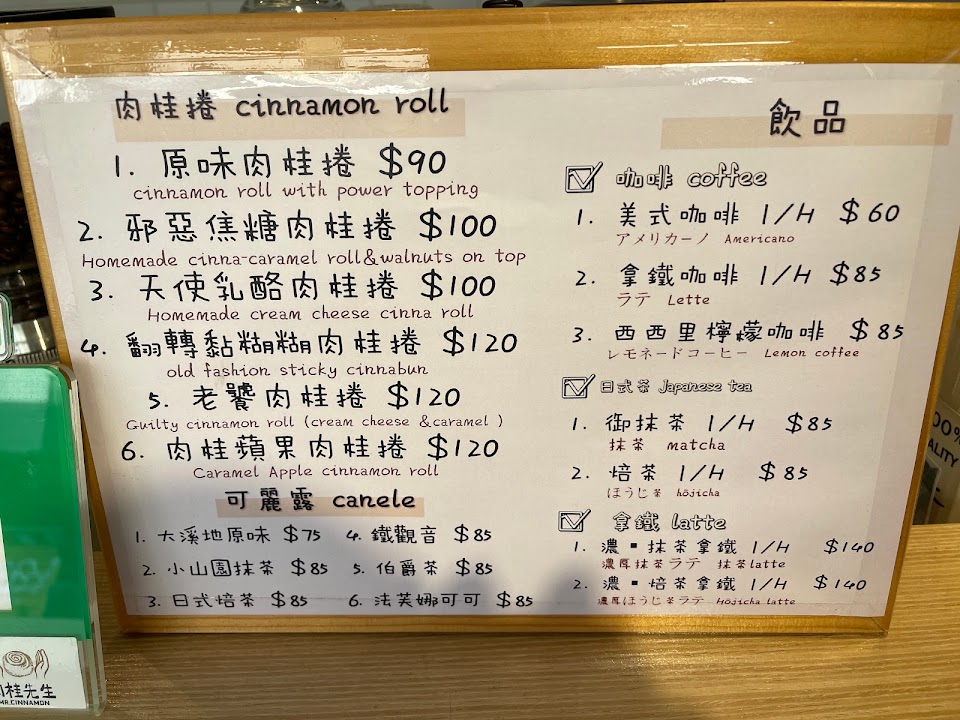 肉桂捲 cinnamon roll
1. 原味肉桂捲 $90
cinnamon roll with power topping
2. 邪惡焦糖肉桂捲 $100
Homemade cinna-caramel roll&walnuts on top
3. 天使乳酪肉桂捲 $100
Homemade cream cheese cinna roll
4. 翻轉黏糊糊肉桂捲 $120
old fashion sticky cinnabun
5. 老饕肉桂捲 $120
Guilty cinnamon roll (cream cheese &caramel )
6. 肉桂蘋果肉桂捲 $120
Caramel Apple cinnamon roll
可麗露 canele
1. 大溪地原味 $75
2. 小山園抹茶 $85
3. 日式焙茶 $85
4. 鐵觀音 $85
5. 伯爵茶 $85
6. 法芙娜可可 $85
飲品
咖啡 coffee
1. 美式咖啡 I/H $60
アメリカーノ Americano
2. 拿鐵咖啡 I/H $85
ラテ Lette
3. 西西里檸檬咖啡 $85
レモネードコーヒー Lemon coffee
日式茶 Japanese tea
1. 御抹茶 I/H $85
抹茶 matcha
2. 焙茶 I/H $85
ほうじ茶 hōjicha
拿鐵 latte
1. 濃▪抹茶拿鐵 I/H $140
濃厚抹茶ラテ 抹茶latte
2. 濃▪焙茶拿鐵 I/H $140
濃厚ほうじ茶ラテ Hōjicha latte
桂先生
MR.CINNAMON
ALITY